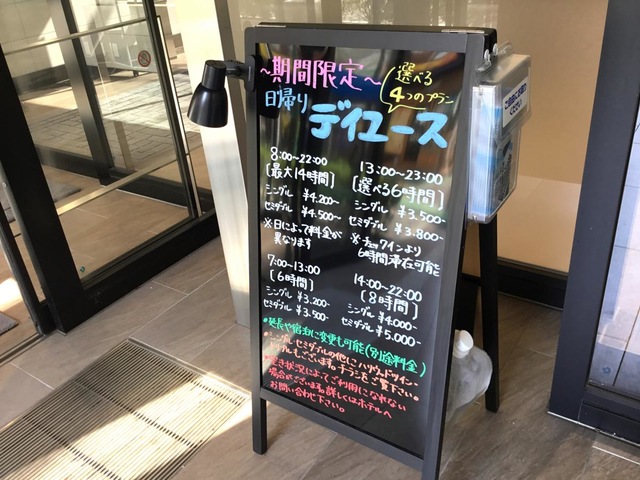 ~期間限定~
選べる
4つのプラン
日帰り
デイユース
8:00~22:00
[最大14時間]
シングル ¥4.200~
セミダブル ¥4.500~
※日によって料金が
異なります
13:00~23:00
[選べる6時間]
シングル ¥3.500-
セミダブル ¥3.800-
※チェックインより
6時間滞在可能
7:00~13:00
[6時間]
シングル ¥3.200-
セミダブル ¥3.500-
14:00~22:00
[8時間]
シングル ¥4.000-
セミダブル ¥5.000-
●延長や宿泊に変更も可能(別途料金)
●シングル、セミダブルの他に、ハリウッドツイン・
もございます。チラシをご覧下さい。
●空き状況によってご利用になれない
場合がございます。詳しくはホテルへ
お問い合わせ下さい。
ください